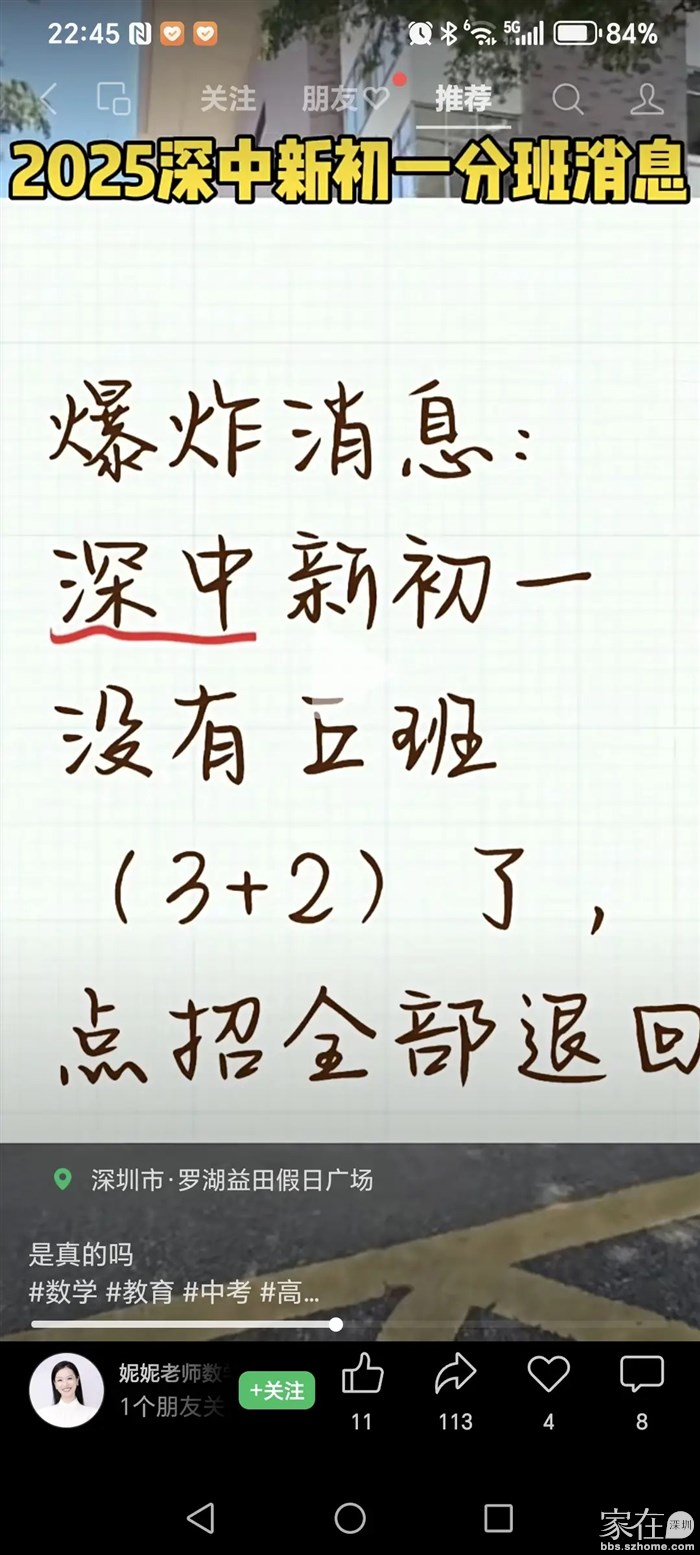 22:45
6
5G
84%
关注 朋友 推荐
2025深中新初一分班消息
爆炸消息:
深中新初一
没有丘班
(3+2)了,
点招全部退回
深圳市·罗湖益田假日广场
是真的吗
#数学 #教育 #中考 #高...
妮妮老师数
+关注
1个朋友关
11
113
4
8
家在深圳
bbs.szhome.com